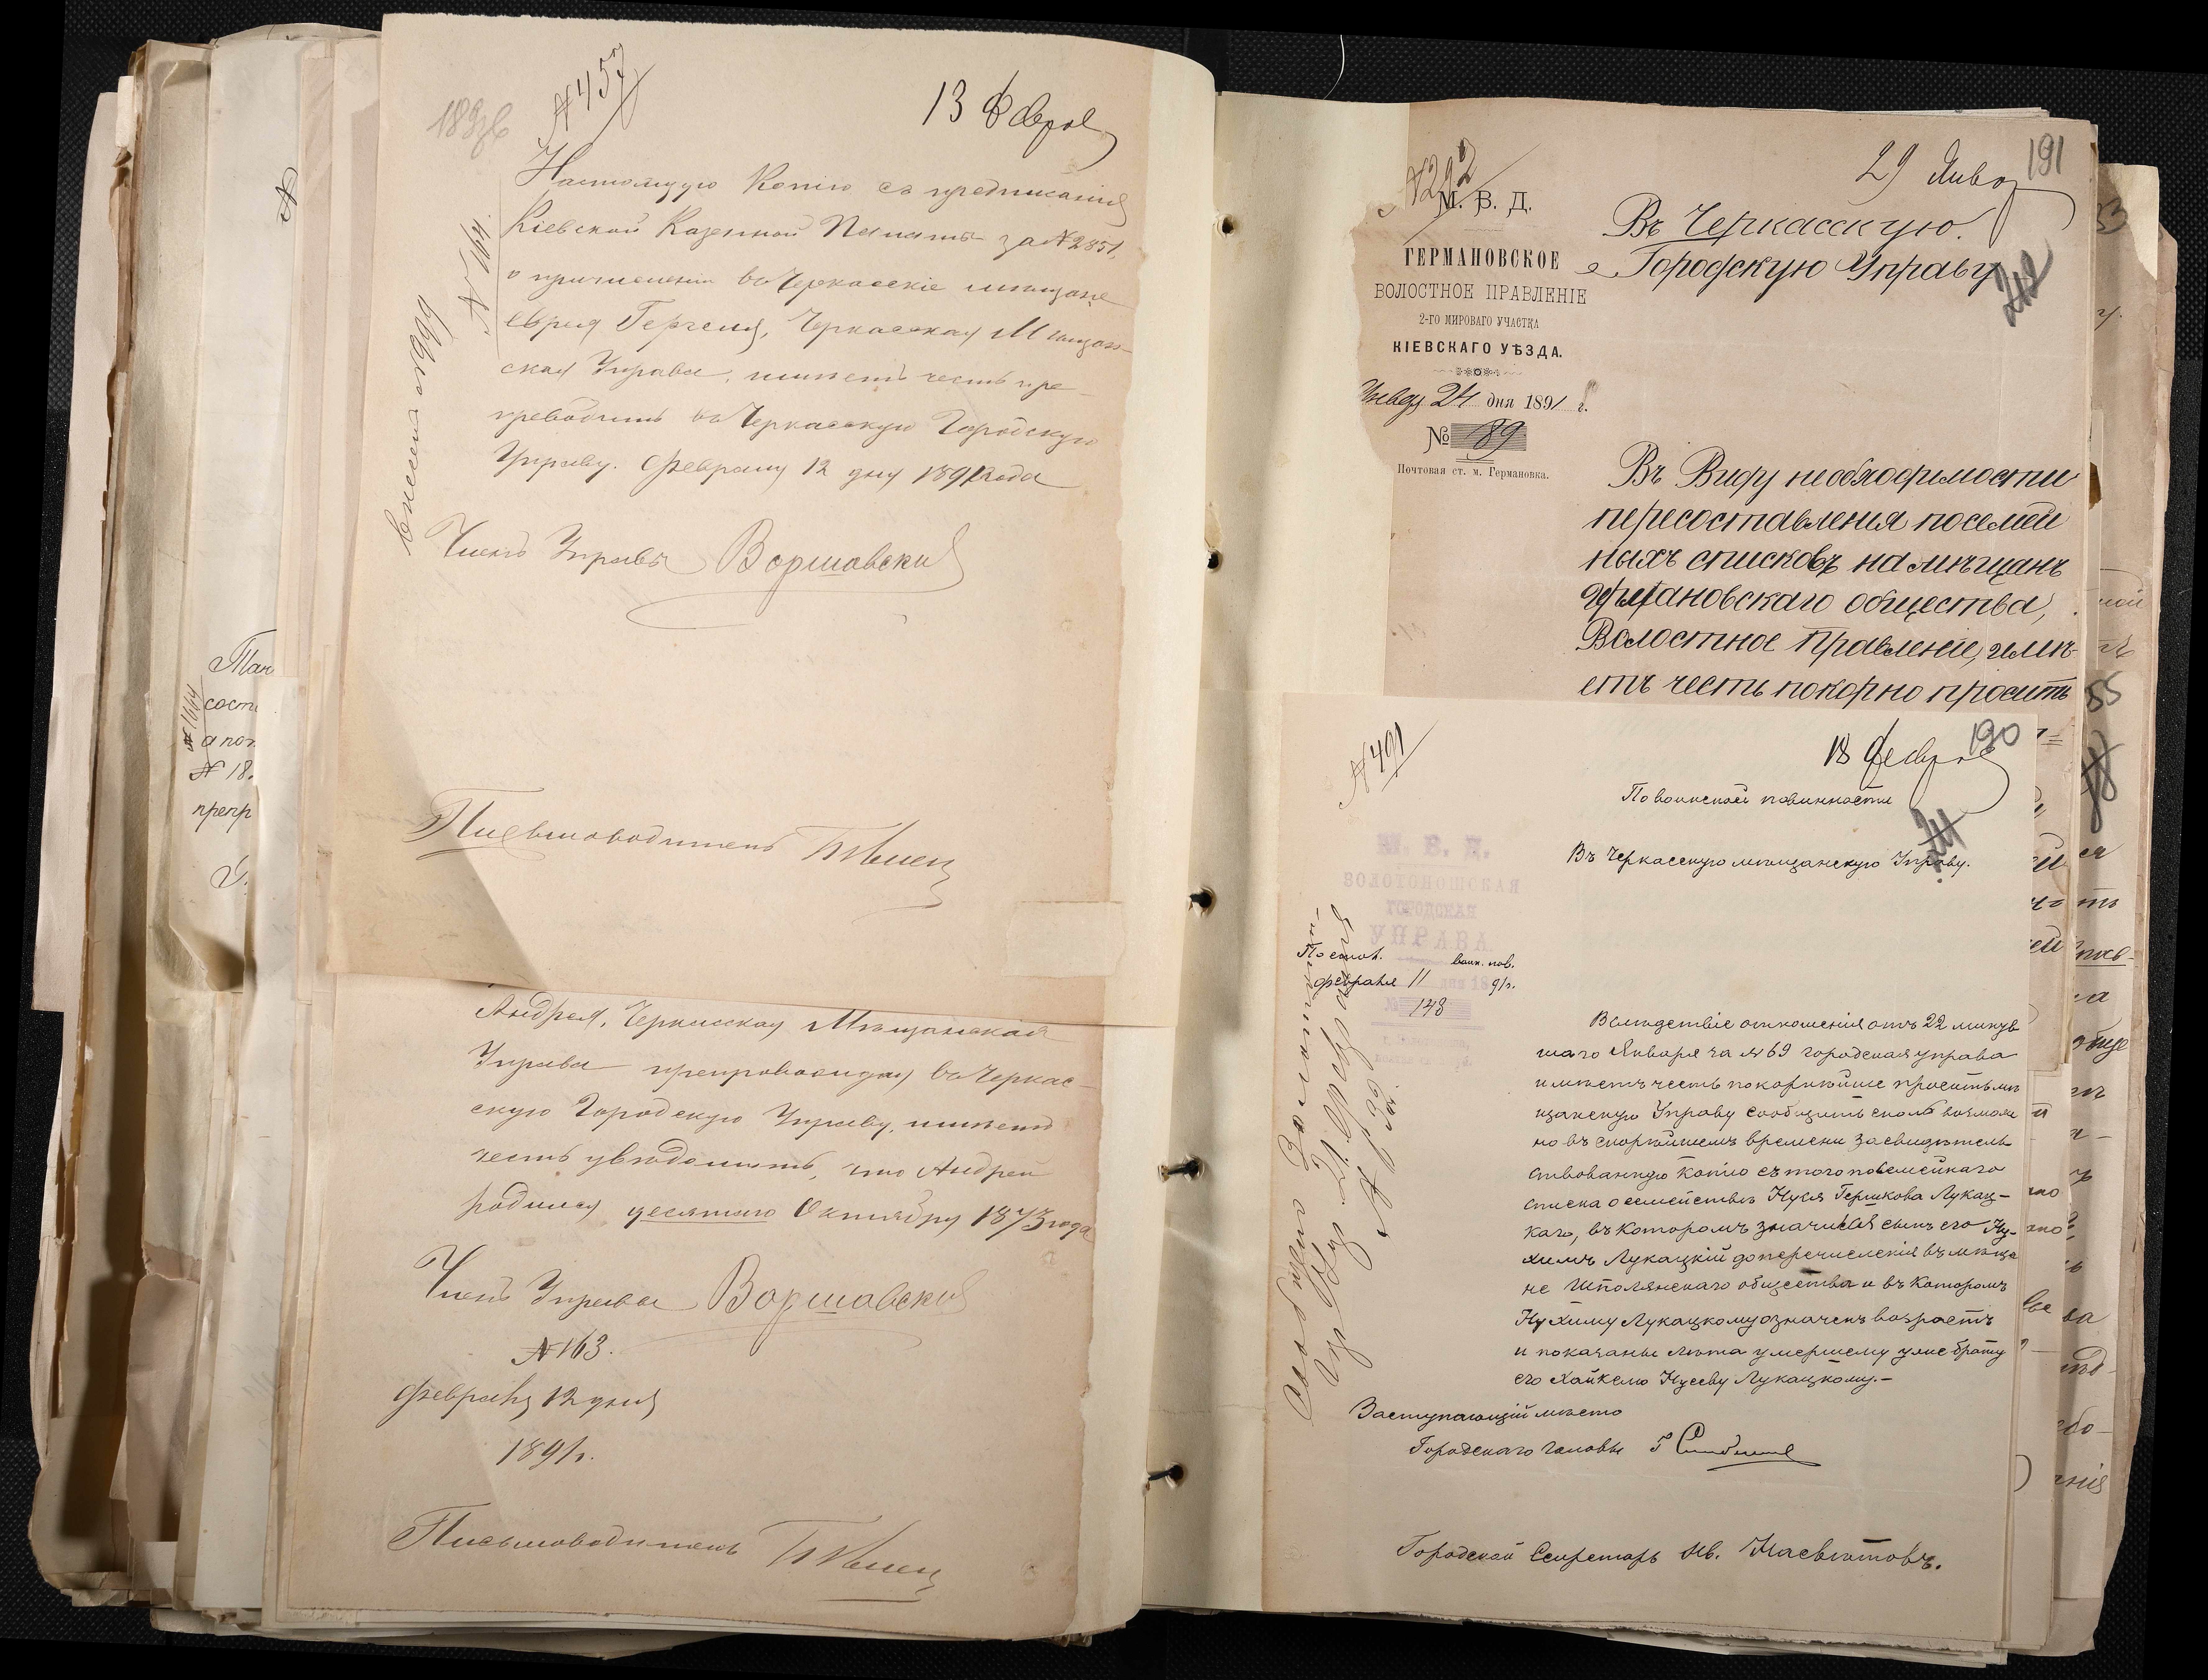 № 457
13 Феврал
Настоящую Копію съ предписанія
Кіевской Казенной Палаты за № 2851,
о причисленіи въ Черкасскіе мѣщане
еврея Герчеля, Черкасская Мѣщан-
ская Управа, имѣетъ честь пре-
проводить въ Черкасскую Городскую
Управу. Февраля 12 дня 1891 года
№ 164.
Членъ Управы Воршавскій
Письмоводитель
Андрея, Черкасская Мѣщанская
Управа препровождая въ Черкас-
скую Городскую Управу, имѣетъ
честь увѣдомить, что Андрей
родился десятаго Октября 1873 года
Членъ Управы Воршавскій
№ 163.
Февраля 12 дня
1891 г.
Письмоводитель
№ 1664
сост
а пот
№ 18
препр
№ 292
29 Янва
191
М. В. Д.
ГЕРМАНОВСКОЕ
ВОЛОСТНОЕ ПРАВЛЕНІЕ
2-ГО МИРОВАГО УЧАСТКА
КІЕВСКАГО УѢЗДА.
Января 24 дня 1891 г.
№ 89
Почтовая ст. м. Германовка.
Въ Черкасскую
Городскую Управу
Въ Виду необходимости
пересоставленія посемей
ныхъ списковъ на мѣщанъ
германовскаго общества,
Волостное Правленіе, имѣ-
етъ честь покорно просить
№ 491
18 Феврал
190
По воинской повинности
Въ Черкасскую мѣщанскую Управу.
М. В. Д.
ЗОЛОТОНОШСКАЯ
ГОРОДСКАЯ
УПРАВА
По стол. воин. пов.
Февраля 11 дня 1891 г.
№ 148
Вслѣдствіе отношенія отъ 22 минув
шаго Января за № 69 городская управа
имѣетъ честь покорнѣйше просить мѣ
щанскую Управу сообщить сколь возмож
но въ скорѣйшемъ времени засвидѣтель
ствованную копію съ того посемейнаго
списка о семействѣ Нуся Гершкова Лукац-
каго, въ которомъ значился сынъ его Ну-
химъ Лукацкій до перечисленія въ мѣща
не Шполянскаго общества и въ которомъ
Нухиму Лукацкому означенъ возрастъ
и показаны лѣта умершему уже брату
его Хайкелю Нусеву Лукацкому.-
Заступающій мѣсто
Городскаго Головы
Городской Секретарь Ив.